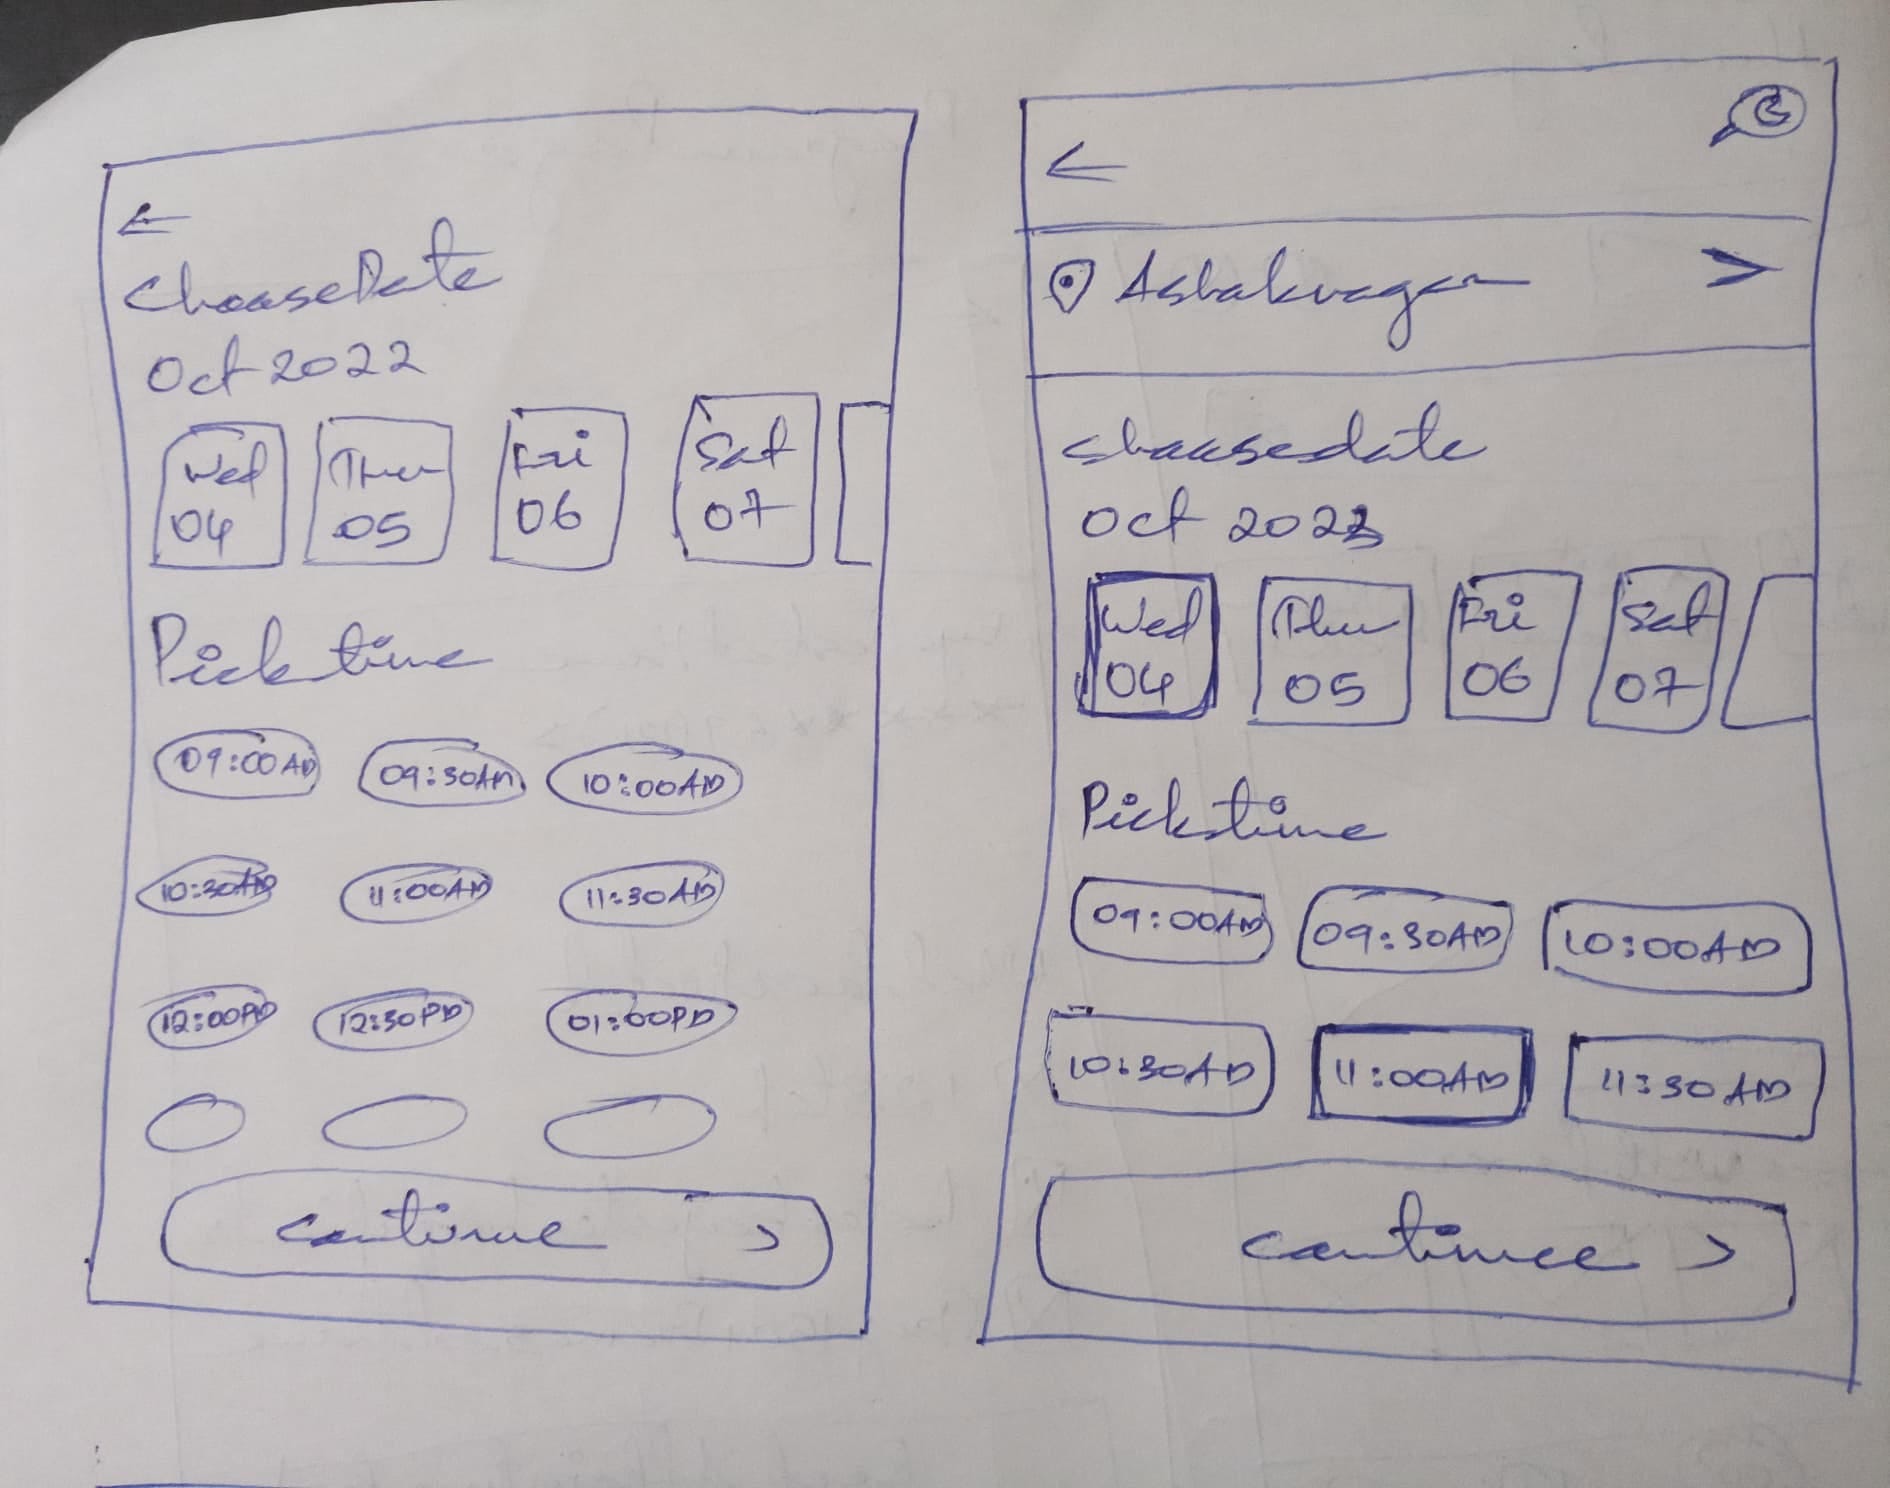 Choose Date
Oct 2022
Wed Thu Fri Sat
04 05 06 07
Pick time
09:00AM 09:30AM 10:00AM
10:30AM 11:00AM 11:30AM
12:00PM 12:30PM 01:00PM
continue >
choose date
Oct 2023
Wed Thu Fri Sat
04 05 06 07
Pick time
09:00AM 09:30AM 10:00AM
10:30AM 11:00AM 11:30AM
continue >